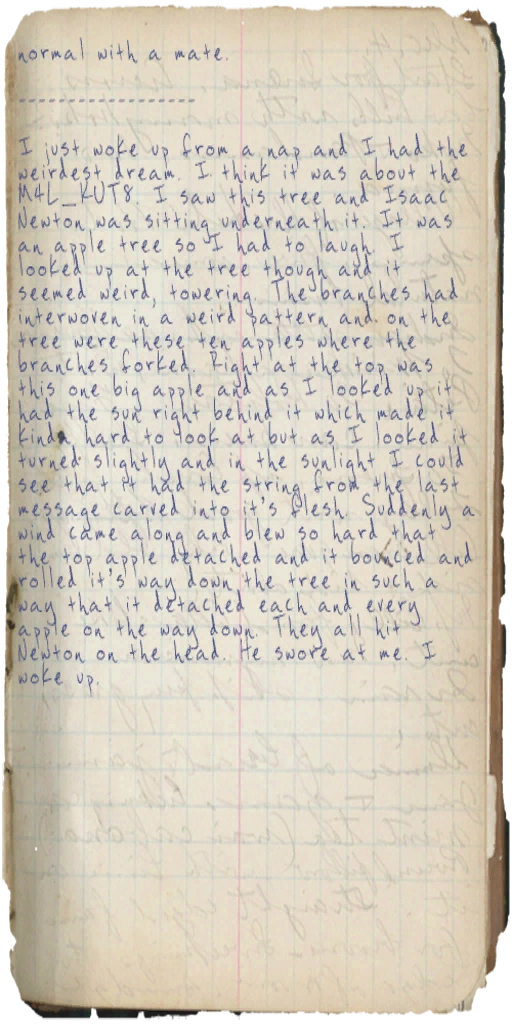 normal with a mate.
-----------------
I just woke up from a nap and I had the
weirdest dream. I think it was about the
M4L_KUT8. I saw this tree and Isaac
Newton was sitting underneath it. It was
an apple tree so I had to laugh. I
looked up at the tree though and it
seemed weird, towering. The branches had
interwoven in a weird pattern and on the
tree were these ten apples where the
branches forked. Right at the top was
this one big apple and as I looked up it
had the sun right behind it which made it
kinda hard to look at but as I looked it
turned slightly and in the sunlight I could
see that it had the string from the last
message carved into it's flesh. Suddenly a
wind came along and blew so hard that
the top apple detached and it bounced and
rolled it's way down the tree in such a
way that it detached each and every
apple on the way down. They all hit
Newton on the head. He swore at me. I
woke up.